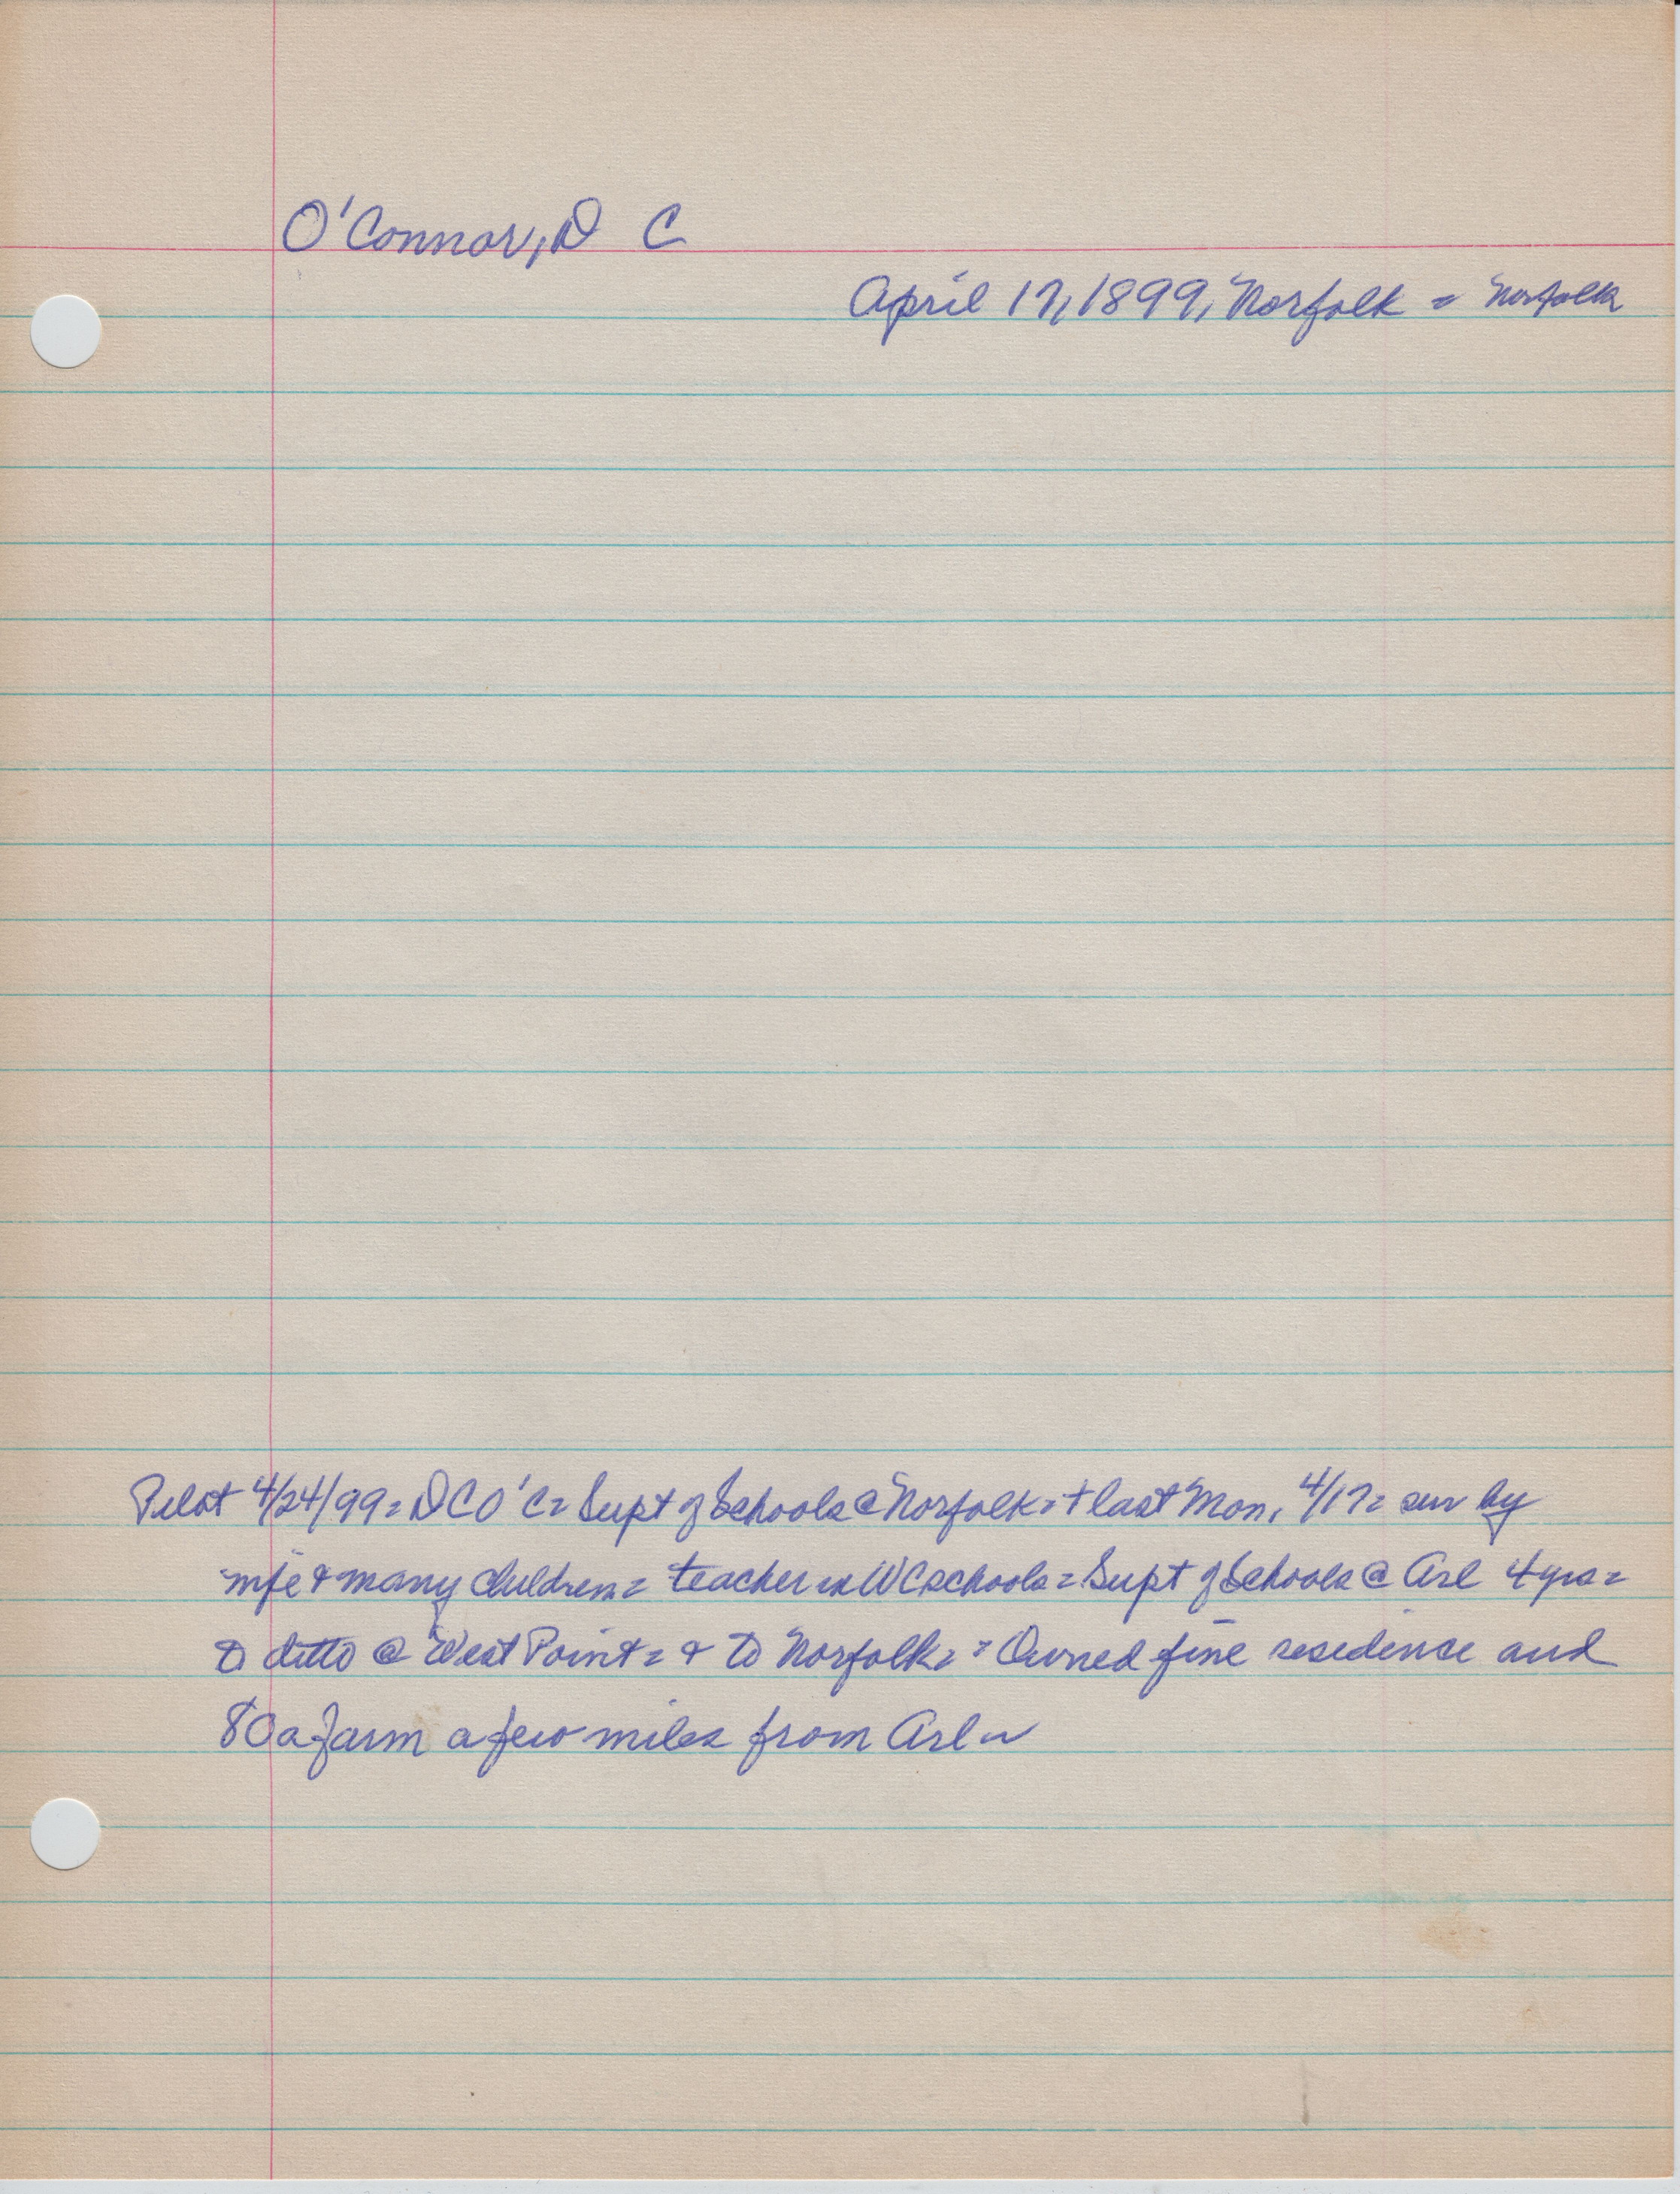 O'Connor, D C
April 17, 1899, Norfolk = Norfolk
Pilot 4/24/99 = D C O'C = Supt of Schools @ Norfolk = + last Mon, 4/17 = sur by
wife & many children = teacher in WC schools = Supt of Schools @ Arl 4 yrs =
to ditto @ West Point = & to Norfolk = = Owned fine residence and
80a farm a few miles from Arl ~